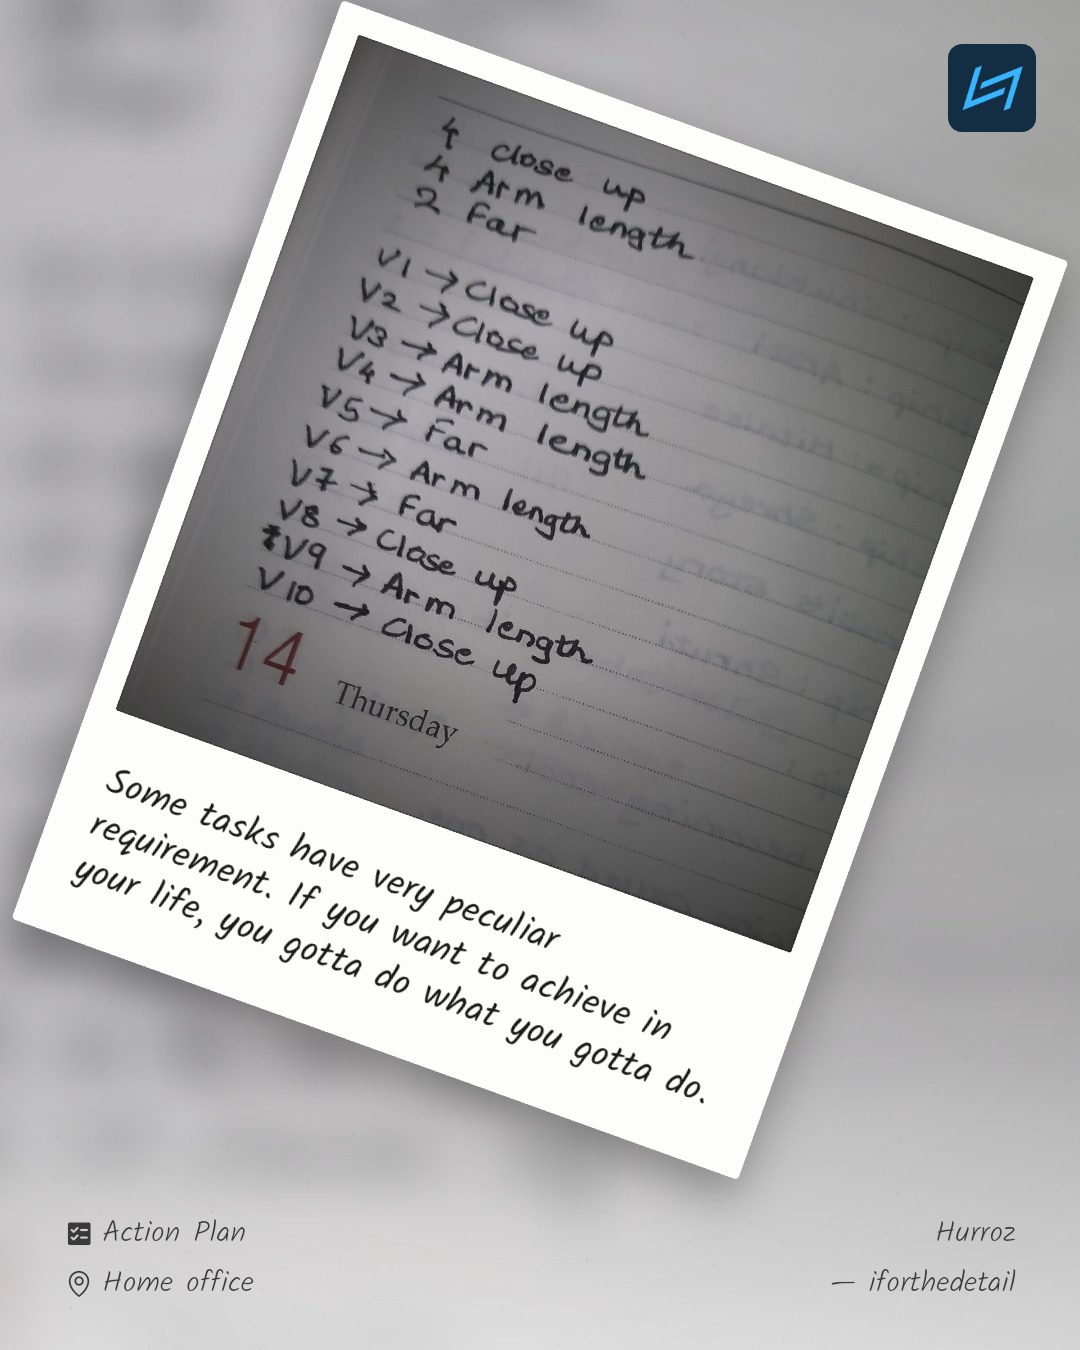 4 Close up
4 Arm length
2 Far
V1 → Close up
V2 → Close up
V3 → Arm length
V4 → Arm length
V5 → Far
V6 → Arm length
V7 → Far
V8 → Close up
V9 → Arm length
V10 → Close up
14 Thursday
Some tasks have very peculiar
requirement. If you want to achieve in
your life, you gotta do what you gotta do.
Action Plan
Home office
Hurroz
— iforthedetail